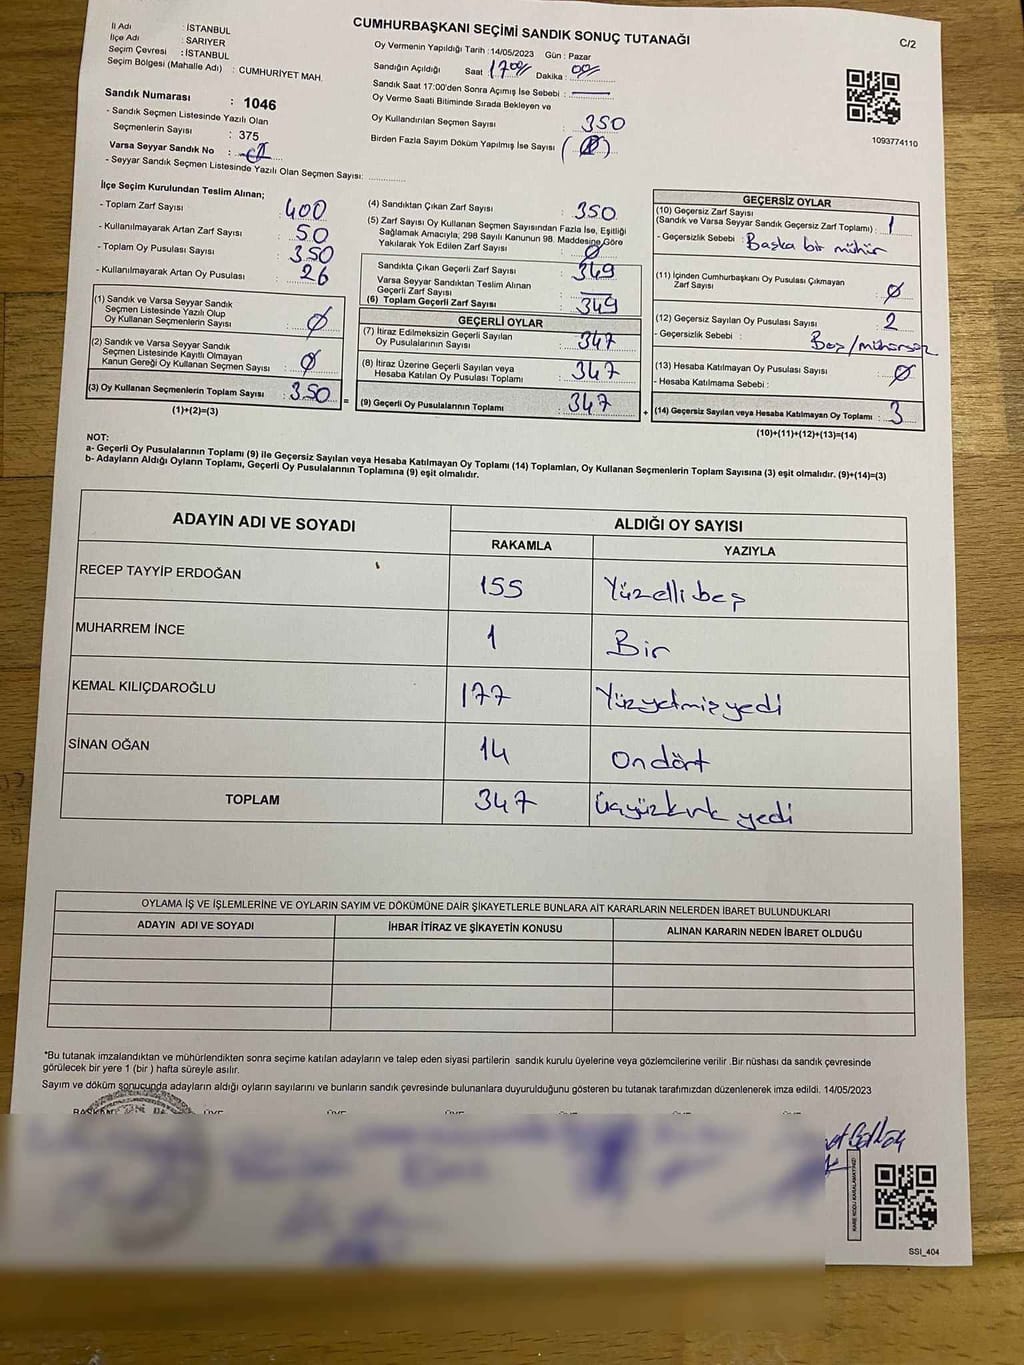 CUMHURBAŞKANI SEÇİMİ SANDIK SONUÇ TUTANAĞI
C/2
İl Adı : İSTANBUL
İlçe Adı : SARIYER
Seçim Çevresi : İSTANBUL
Seçim Bölgesi (Mahalle Adı) : CUMHURİYET MAH.
Sandık Numarası : 1046
- Sandık Seçmen Listesinde Yazılı Olan
Seçmenlerin Sayısı : 375
Varsa Seyyar Sandık No :
- Seyyar Sandık Seçmen Listesinde Yazılı Olan Seçmen Sayısı: ..............
Oy Vermenin Yapıldığı Tarih : 14/05/2023 Gün : Pazar
Sandığın Açıldığı Saat : 17 00 Dakika : 00
Sandık Saat 17:00'den Sonra Açımış İse Sebebi :
Oy Verme Saati Bitiminde Sırada Bekleyen ve
Oy Kullandırılan Seçmen Sayısı : 350
Birden Fazla Sayım Döküm Yapılmış İse Sayısı (0)
1093774110
İlçe Seçim Kurulundan Teslim Alınan;
- Toplam Zarf Sayısı : 400
- Kullanılmayarak Artan Zarf Sayısı : 50
- Toplam Oy Pusulası Sayısı : 350
- Kullanılmayarak Artan Oy Pusulası : 26
(1) Sandık ve Varsa Seyyar Sandık
Seçmen Listesinde Yazılı Olup
Oy Kullanan Seçmenlerin Sayısı : Ø
(2) Sandık ve Varsa Seyyar Sandık
Seçmen Listesinde Kayıtlı Olmayan
Kanun Gereği Oy Kullanan Seçmen Sayısı : Ø
(3) Oy Kullanan Seçmenlerin Toplam Sayısı : 350
(1)+(2)=(3)
=
(4) Sandıktan Çıkan Zarf Sayısı : 350
(5) Zarf Sayısı Oy Kullanan Seçmen Sayısından Fazla İse, Eşitliği
Sağlamak Amacıyla, 298 Sayılı Kanunun 98. Maddesine Göre
Yakılarak Yok Edilen Zarf Sayısı : Ø
Sandıkta Çıkan Geçerli Zarf Sayısı : 349
Varsa Seyyar Sandıktan Teslim Alınan
Geçerli Zarf Sayısı :
(6) Toplam Geçerli Zarf Sayısı : 349
GEÇERLİ OYLAR
(7) İtiraz Edilmeksizin Geçerli Sayılan
Oy Pusulalarının Sayısı : 347
(8) İtiraz Üzerine Geçerli Sayılan veya
Hesaba Katılan Oy Pusulası Toplamı : 347
(9) Geçerli Oy Pusulalarının Toplamı : 347
+
GEÇERSİZ OYLAR
(10) Geçersiz Zarf Sayısı
(Sandık ve Varsa Seyyar Sandık Geçersiz Zarf Toplamı) : 1
- Geçersizlik Sebebi : Başka bir mühür
(11) İçinden Cumhurbaşkanı Oy Pusulası Çıkmayan
Zarf Sayısı : Ø
(12) Geçersiz Sayılan Oy Pusulası Sayısı : 2
- Geçersizlik Sebebi : Boş/mühürsüz
(13) Hesaba Katılmayan Oy Pusulası Sayısı : Ø
- Hesaba Katılmama Sebebi :
(14) Geçersiz Sayılan veya Hesaba Katılmayan Oy Toplamı : 3
(10)+(11)+(12)+(13)=(14)
NOT:
a- Geçerli Oy Pusulalarının Toplamı (9) ile Geçersiz Sayılan veya Hesaba Katılmayan Oy Toplamı (14) Toplamları, Oy Kullanan Seçmenlerin Toplam Sayısına (3) eşit olmalıdır. (9)+(14)=(3)
b- Adayların Aldığı Oyların Toplamı, Geçerli Oy Pusulalarının Toplamına (9) eşit olmalıdır.
ADAYIN ADI VE SOYADI ALDIĞI OY SAYISI
RAKAMLA YAZIYLA
RECEP TAYYİP ERDOĞAN 155 Yüzelli beş
MUHARREM İNCE 1 Bir
KEMAL KILIÇDAROĞLU 177 Yüzyetmişyedi
SİNAN OĞAN 14 Ondört
TOPLAM 347 Üçyüzkırk yedi
OYLAMA İŞ VE İŞLEMLERİNE VE OYLARIN SAYIM VE DÖKÜMÜNE DAİR ŞİKAYETLERLE BUNLARA AİT KARARLARIN NELERDEN İBARET BULUNDUKLARI
ADAYIN ADI VE SOYADI İHBAR İTİRAZ VE ŞİKAYETİN KONUSU ALINAN KARARIN NEDEN İBARET OLDUĞU
*Bu tutanak imzalandıktan ve mühürlendikten sonra seçime katılan adayların ve talep eden siyasi partilerin sandık kurulu üyelerine veya gözlemcilerine verilir .Bir nüshası da sandık çevresinde
görülecek bir yere 1 (bir ) hafta süreyle asılır.
Sayım ve döküm sonucunda adayların aldığı oyların sayılarını ve bunların sandık çevresinde bulunanlara duyurulduğunu gösteren bu tutanak tarafımızdan düzenlenerek imza edildi. 14/05/2023
BAŞKAN ÜYE ÜYE ÜYE ÜYE ÜYE ÜYE
KARE KODU KARALAMAYINIZ!
SSI_404